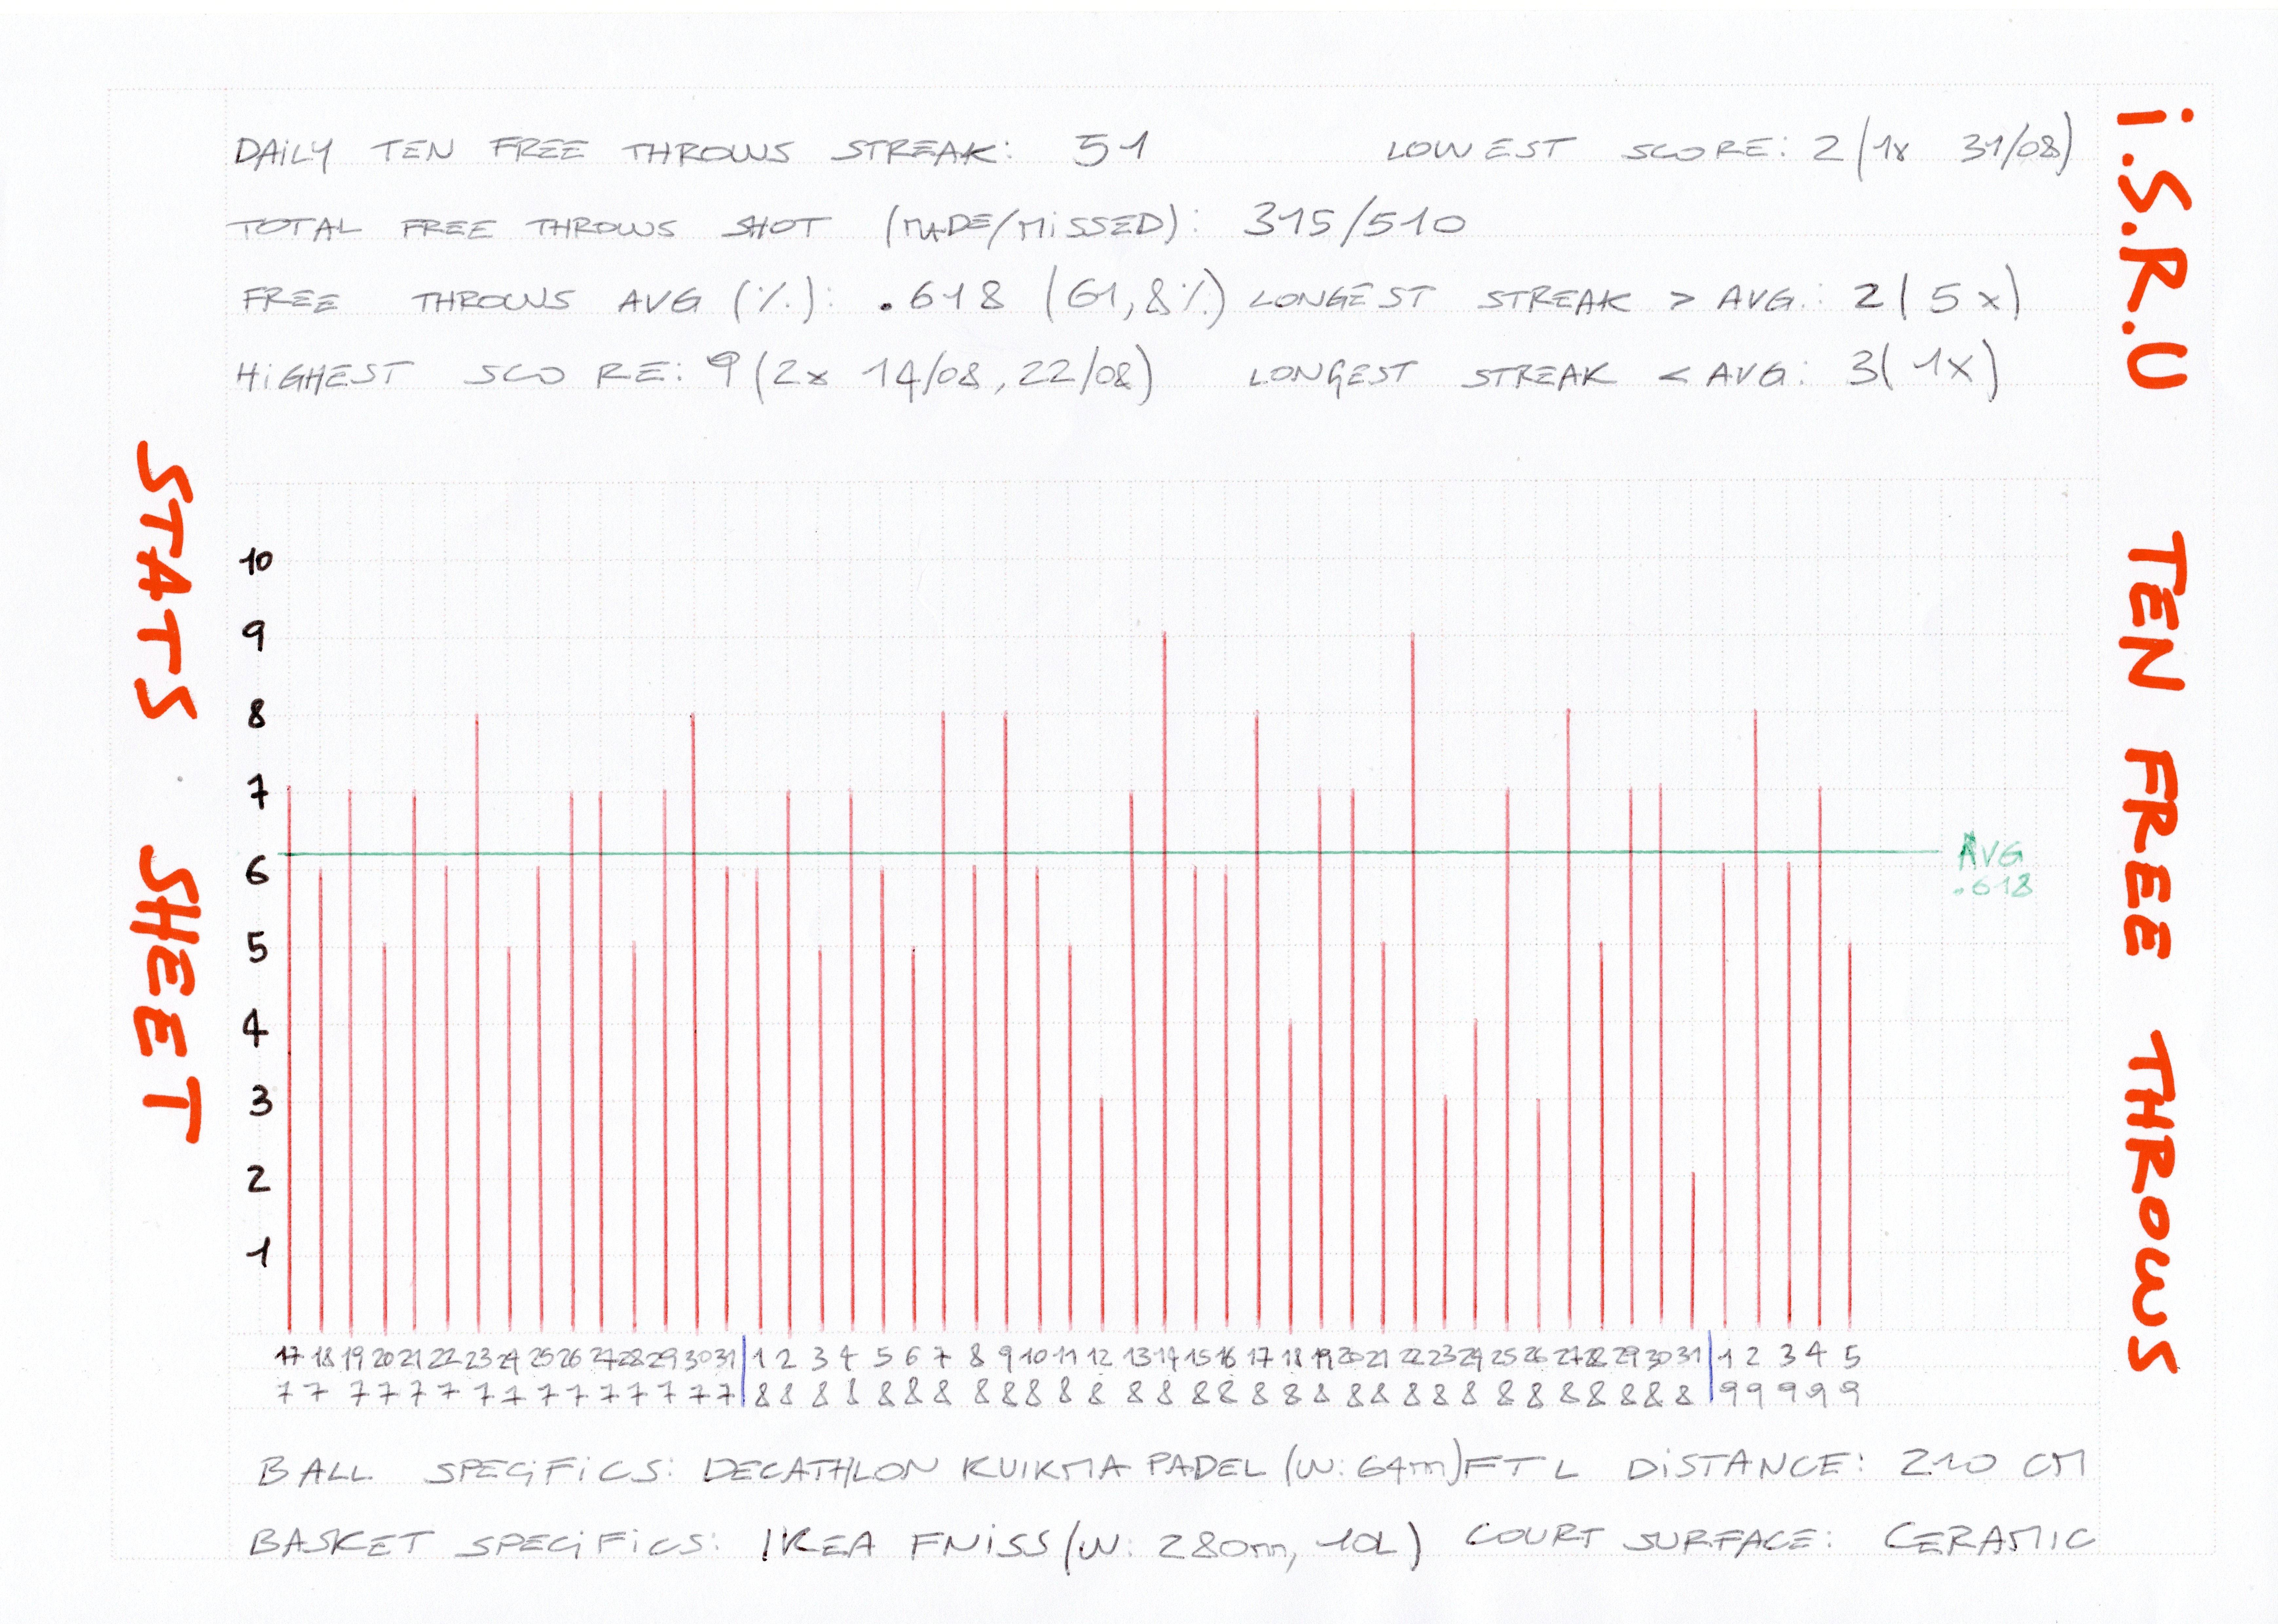 DAiLY TEN FREE THROWS STREAK: 51 LOWEST SCORE: 2 (1x 31/08)
TOTAL FREE THROWS SHOT (MADE/MiSSED): 315/510
FREE THROWS AVG (%): .618 (61,8%) LONGEST STREAK > AVG.: 2 (5x)
HiGHEST SCORE: 9 (2x 14/08, 22/08) LONGEST STREAK < AVG: 3 (1X)
i.S.R.U TEN FREE THROWS
STATS SHEET
10
9
8
7
6
5
4
3
2
1
AVG
.618
17 18 19 20 21 22 23 24 25 26 27 28 29 30 31 1 2 3 4 5 6 7 8 9 10 11 12 13 14 15 16 17 18 19 20 21 22 23 24 25 26 27 28 29 30 31 1 2 3 4 5
7 7 7 7 7 7 7 7 7 7 7 7 7 7 7 8 8 8 8 8 8 8 8 8 8 8 8 8 8 8 8 8 8 8 8 8 8 8 8 8 8 8 8 8 8 8 9 9 9 9 9
BALL SPECiFiCS: DECATHLON KUIKMA PADEL (W: 64m) FTL DiSTANCE: 210 CM
BASKET SPECiFiCS: IKEA FNiSS (W: 280m, 10L) COURT SURFACE: CERAMIC